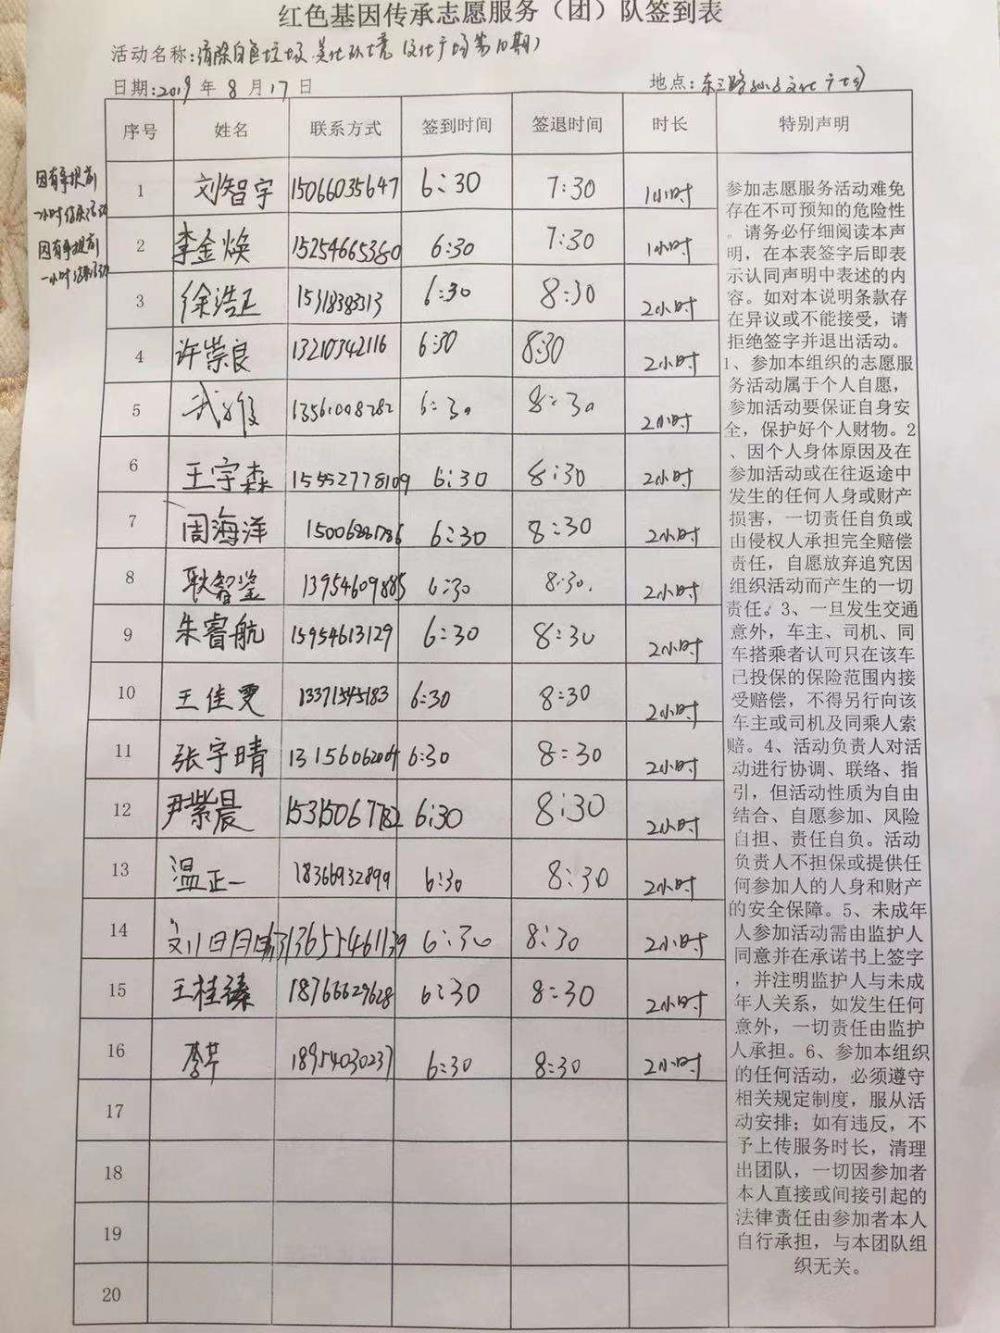 红色基因传承志愿服务（团）队签到表
活动名称：清除白色垃圾 美化环境（文化广场第10期）
日期：2019 年 8 月 17 日 地点：东三路 文化广场
序号 姓名 联系方式 签到时间 签退时间 时长 特别声明
因有事提前
一小时结束活动
因有事提前
一小时结束活动
1 刘智宇 15066035647 6:30 7:30 1小时
2 李金焕 15254665380 6:30 7:30 1小时
3 徐浩正 1531838313 6:30 8:30 2小时
4 许崇良 13210342116 6:30 8:30 2小时
5 13561008282 6:30 8:30 2小时
6 王宇森 15552778109 6:30 8:30 2小时
7 周海洋 15006881786 6:30 8:30 2小时
8 耿智鉴 13954609885 6:30 8:30. 2小时
9 朱睿航 15954613129 6:30 8:30 2小时
10 王佳雯 13371545183 6:30 8:30 2小时
11 张宇晴 13156062004 6:30 8:30 2小时
12 尹紫晨 15315067782 6:30 8:30 2小时
13 温正一 18366932899 6:30 8:30 2小时
14 13655461139 6:30 8:30 2小时
15 王桂臻 18766629628 6:30 8:30 2小时
16 18954030237 6:30 8:30 2小时
17
18
19
20
参加志愿服务活动难免
存在不可预知的危险性
。请务必仔细阅读本声
明，在本表签字后即表
示认同声明中表述的内
容。如对本说明条款存
在异议或不能接受，请
拒绝签字并退出活动。
1、参加本组织的志愿服
务活动属于个人自愿，
参加活动要保证自身安
全，保护好个人财物。2
、因个人身体原因及在
参加活动或在往返途中
发生的任何人身或财产
损害，一切责任自负或
由侵权人承担完全赔偿
责任，自愿放弃追究因
组织活动而产生的一切
责任。3、一旦发生交通
意外，车主、司机、同
车搭乘者认可只在该车
已投保的保险范围内接
受赔偿，不得另行向该
车主或司机及同乘人索
赔。4、活动负责人对活
动进行协调、联络、指
引，但活动性质为自由
结合、自愿参加、风险
自担、责任自负。活动
负责人不担保或提供任
何参加人的人身和财产
的安全保障。5、未成年
人参加活动需由监护人
同意并在承诺书上签字
，并注明监护人与未成
年人关系，如发生任何
意外，一切责任由监护
人承担。6、参加本组织
的任何活动，必须遵守
相关规定制度，服从活
动安排；如有违反，不
予上传服务时长，清理
出团队，一切因参加者
本人直接或间接引起的
法律责任由参加者本人
自行承担，与本团队组
织无关。